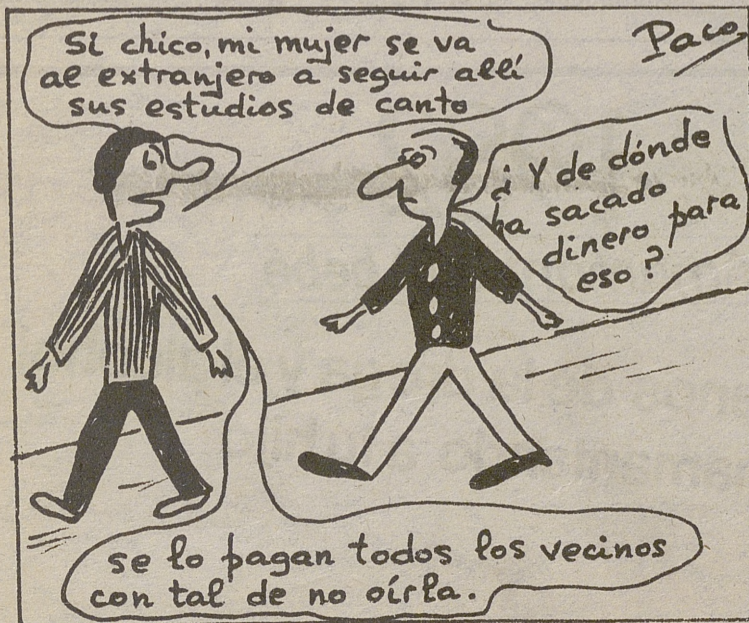 Si chico, mi mujer se va
al extranjero a seguir allí
sus estudios de canto
Paco
¿Y de dónde
ha sacado
dinero para
eso?
se lo pagan todos los vecinos
con tal de no oírla.